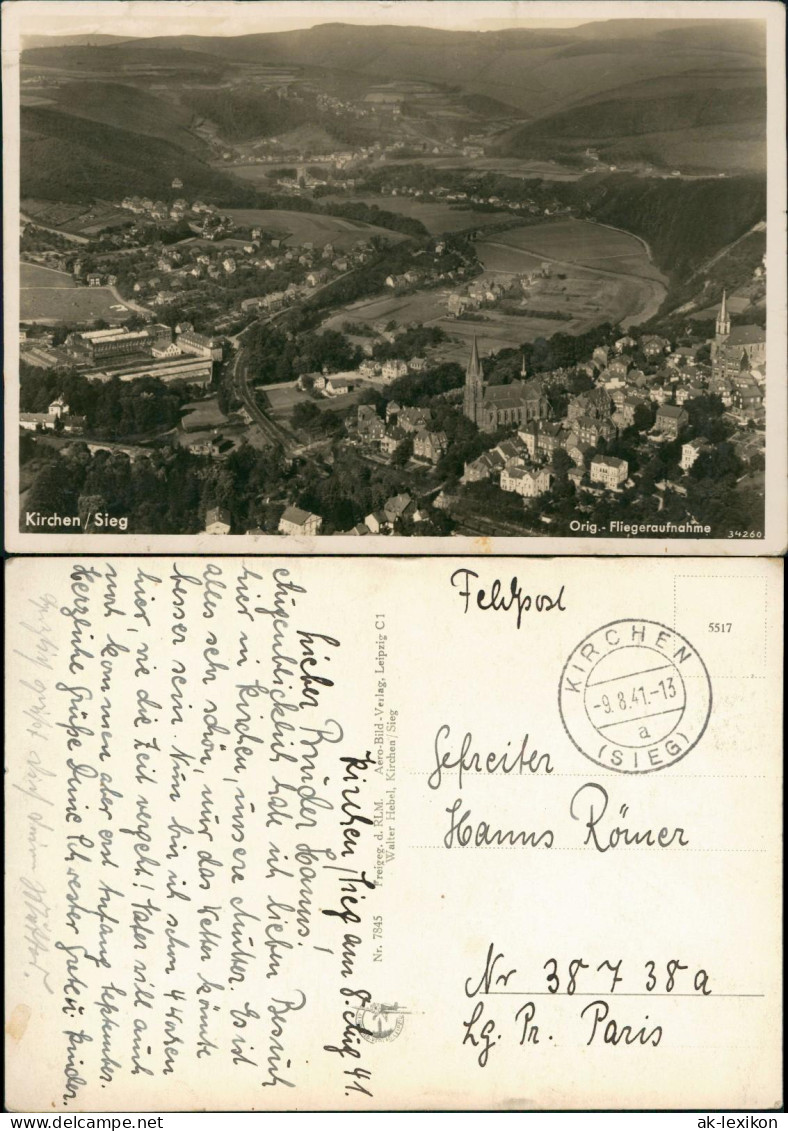 Kirchen / Sieg
Orig. - Fliegeraufnahme
34260
Feldpost
5517
KIRCHEN
-9.8.41.-13
a
(SIEG)
Gefreiter
Hanns Römer
Nr 38738a
Lg. Pr. Paris
Nr. 7845 Freigeg. d. RLM. Aero-Bild-Verlag, Leipzig C 1
Walter Hebel, Kirchen/Sieg
Kirchen/Sieg am 8. Aug 41.
Lieber Bruder Hanns!
Augenblicklich habe ich lieben Besuch
hier in Kirchen, unsere Mutter. Es ist
alles sehr schön, nur das Wetter könnte
besser sein. Nun bin ich schon 4 Wochen
hier, wie die Zeit vergeht! Vater will auch
noch kommen aber erst Anfang September.
Herzliche Grüße Deine Schwester Grete u. Kinder.
Herzlich grüßt Dich Deine Mutter.
ak-lexikon